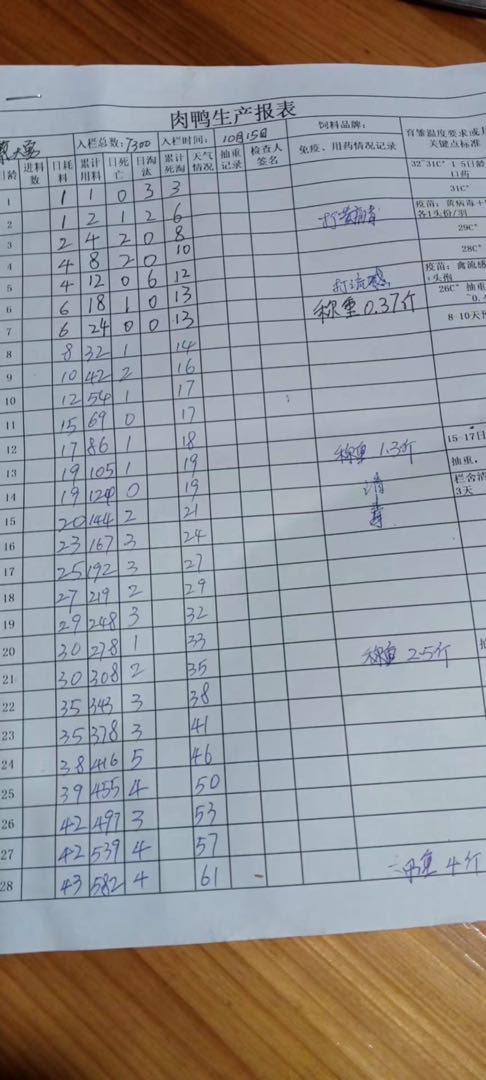 肉鸭生产报表
入栏总数: 7300 入栏时间: 10月15日 饲料品牌:
日龄 进料数 日耗料 累计用料 日死亡 日淘汰 累计死淘 天气情况 抽重记录 检查人签名 免疫、用药情况记录 育雏温度要求或
关键点标准
1 1 1 0 3 3 32~31C° 1-5日龄
2 1 2 1 2 6 31C°
3 2 4 2 0 8 疫苗:
各1头份/羽
4 4 8 2 0 10 29C°
5 4 12 0 6 12 28C°
6 6 18 1 0 13 打流感 疫苗: 禽流感
7 6 24 0 0 13 称重 0.37斤 26C° 抽重
8 8 32 1 14 8-10天
9 10 42 2 16
10 12 54 1 17
11 15 69 0 17
12 17 86 1 18
13 19 105 1 19 称重 1.3斤 15-17日
抽重.
14 19 124 0 19 消 栏舍清
3天
15 20 144 2 21 毒
16 23 167 3 24
17 25 192 3 27
18 27 219 2 29
19 29 248 3 32
20 30 278 1 33
21 30 308 2 35 称重 2.5斤
22 35 343 3 38
23 35 378 3 41
24 38 416 5 46
25 39 455 4 50
26 42 497 3 53
27 42 539 4 57
28 43 582 4 61 重 4斤